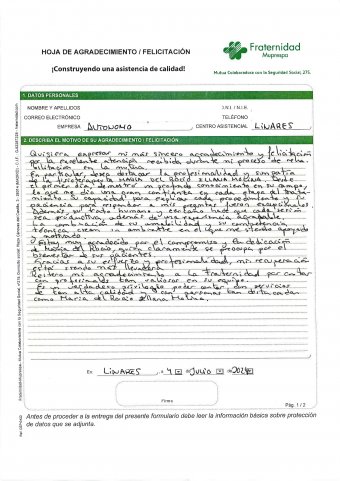 HOJA DE AGRADECIMIENTO / FELICITACIÓN
¡Construyendo una asistencia de calidad!
Fraternidad
Muprespa
Mutua Colaboradora con la Seguridad Social, 275.
1. DATOS PERSONALES
NOMBRE Y APELLIDOS
D.N.I. / N.I.E.
CORREO ELECTRÓNICO
TELÉFONO
EMPRESA AUTONOMO
CENTRO ASISTENCIAL LINARES
2. DESCRIBA EL MOTIVO DE SU AGRADECIMIENTO / FELICITACIÓN
Quisiera expresar mi más sincero agradecimiento y felicitación
por la excelente atención recibida durante mi proceso de reha-
bilitación en la mutua.
En particular, deseo destacar la profesionalidad y simpatía
de la fisioterapeuta MARIA DEL ROCIO ILLANA MOLINA. Desde
el primer día, demostró un profundo conocimiento en su campo,
lo que me dio una gran confianza en cada etapa del trata-
miento. Su capacidad para explicar cada procedimiento y su
paciencia para responder a mis preguntas fueron excepcionales.
Además, su trato humano y cercano hizo que cada sesión
sea productiva, además de una experiencia agradable.
La combinación de su amabilidad y su competencia
técnica creó un ambiente en el que me sentí apoyado
y motivado.
Estoy muy agradecido por el compromiso y la dedicación
de María del Rocío, quien claramente se preocupa por el
bienestar de sus pacientes.
Gracias a su esfuerzo y profesionalidad, mi recuperación
está siendo más llevadera.
Reitero mi agradecimiento a la Fraternidad por contar
con profesionales tan valiosos en su equipo.
Es un verdadero privilegio poder contar con servicios
de tan alta calidad y con personas tan destacadas
como María del Rocío Illana Molina.
En LINARES, a 4 de Julio de 2024
Firma
Pág. 1 / 2
Antes de proceder a la entrega del presente formulario debe leer la información básica sobre protección
de datos que se adjunta.